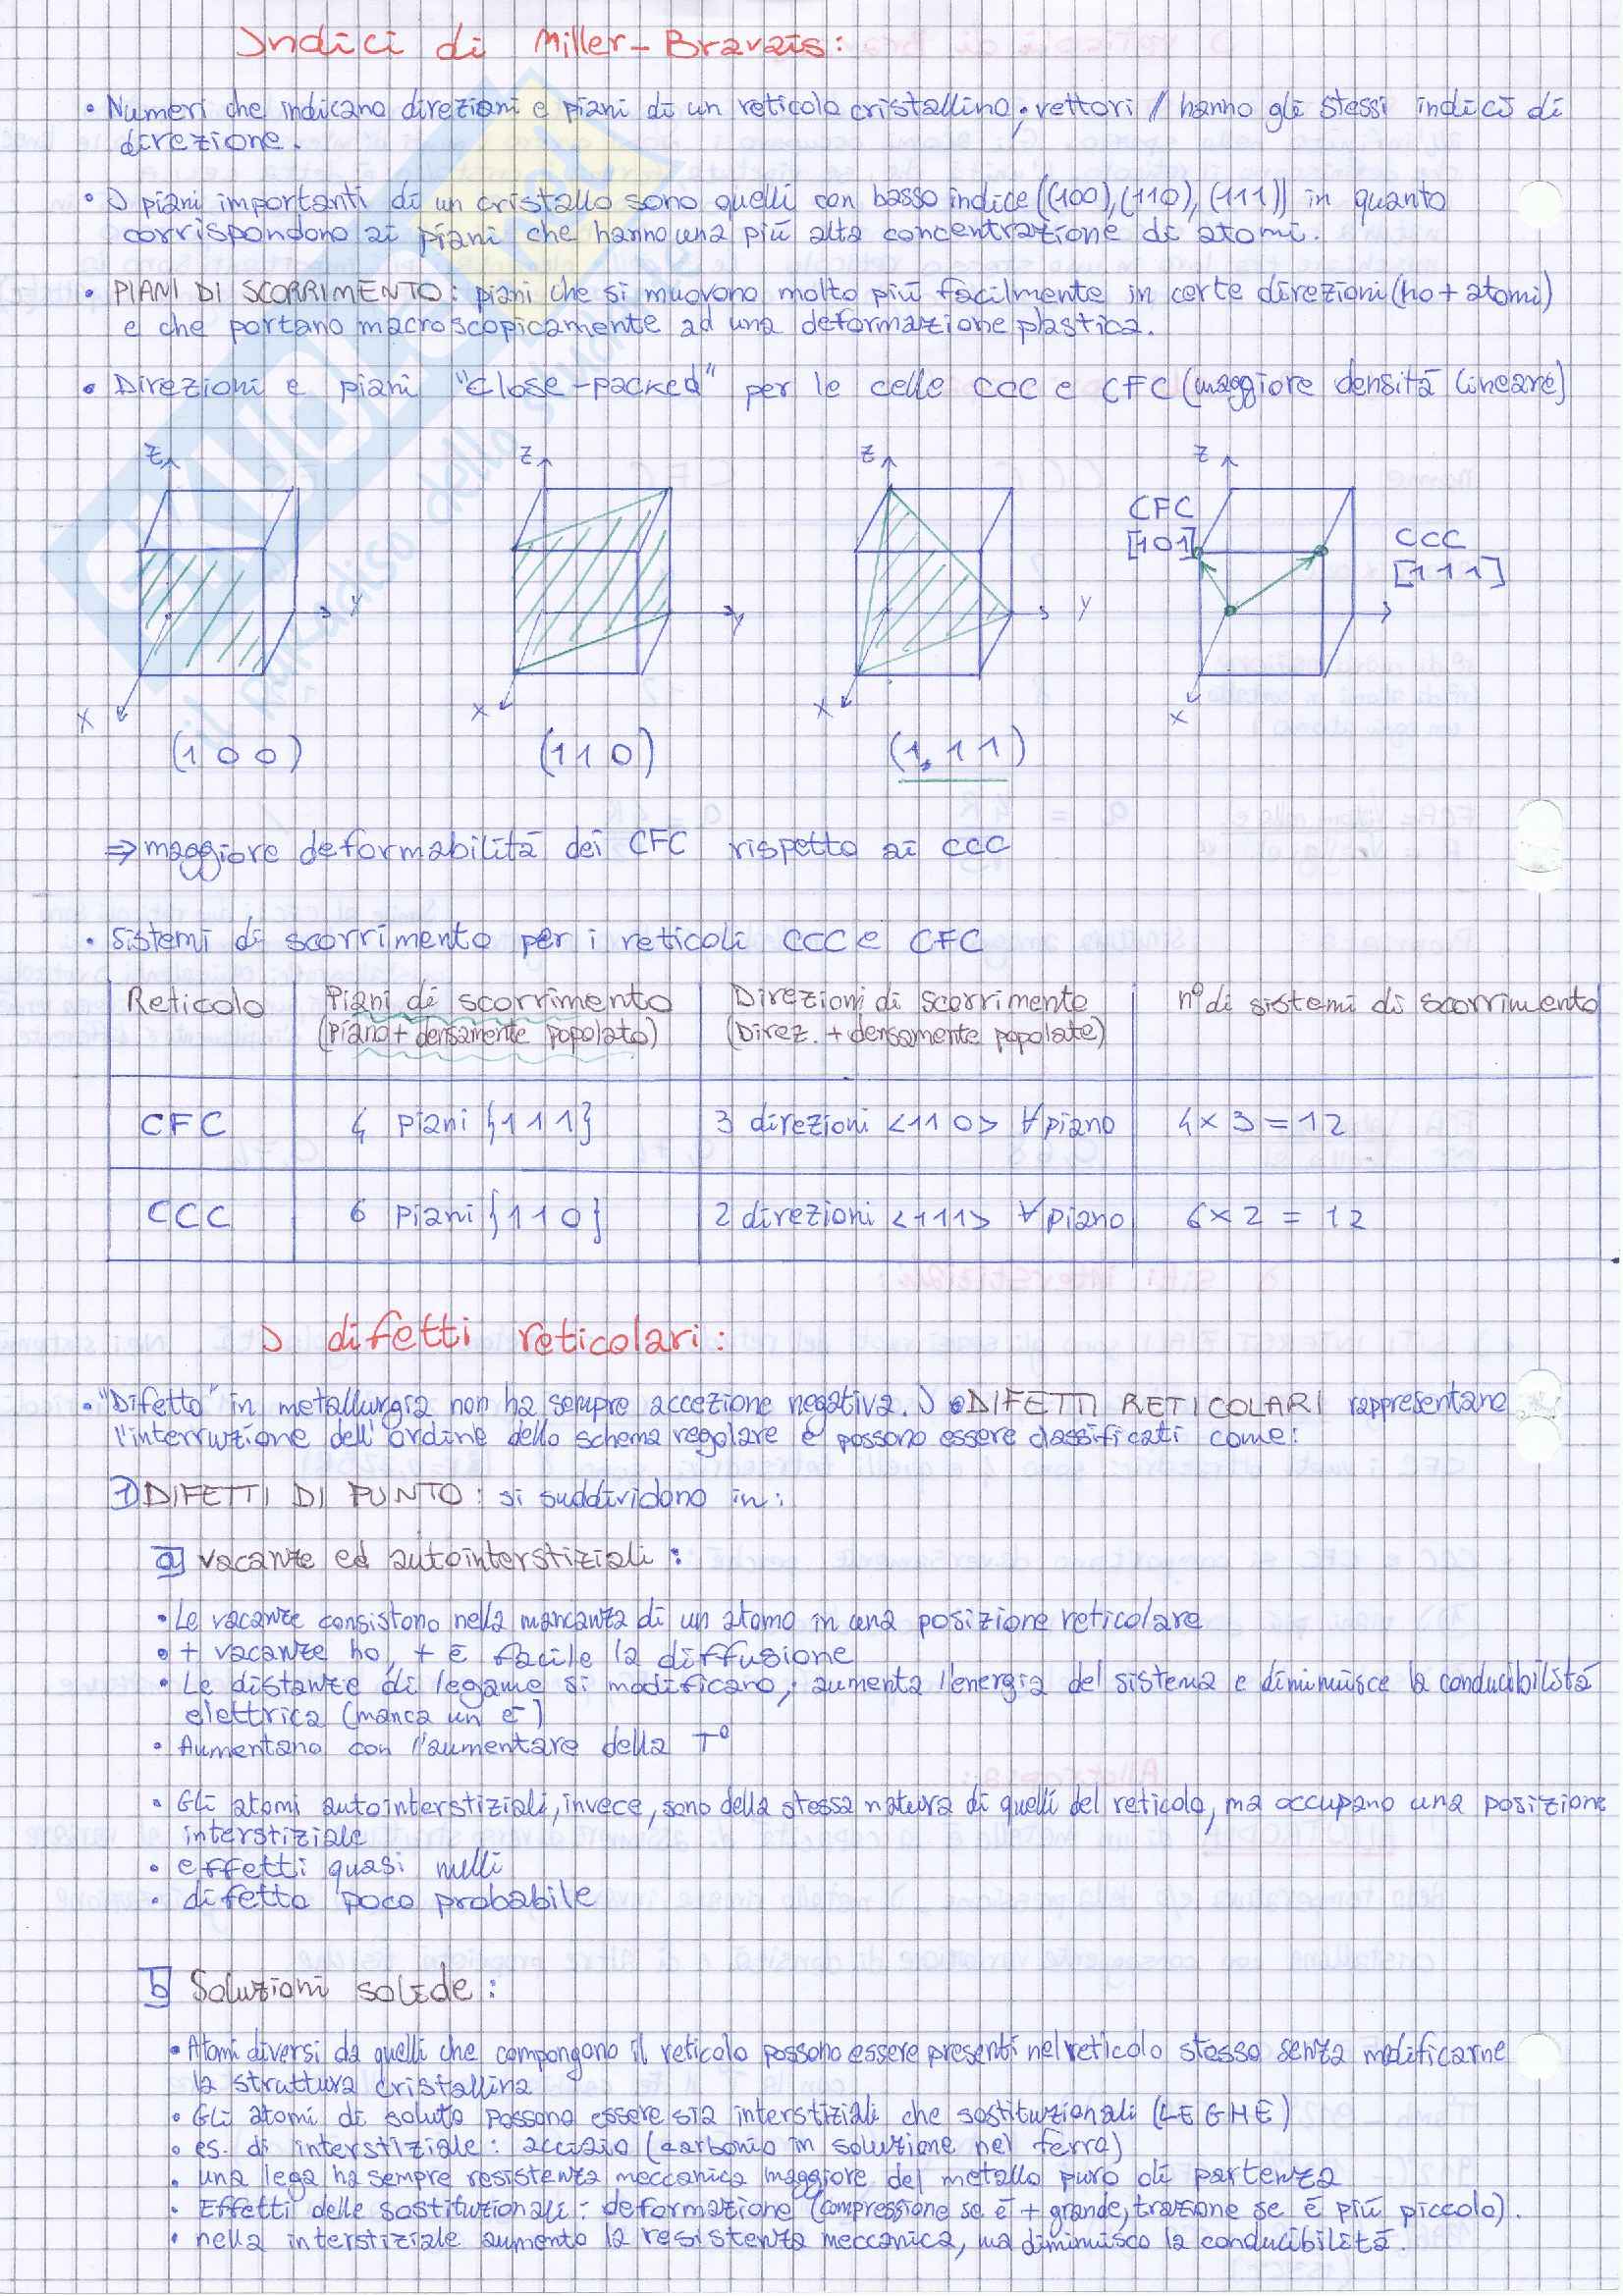 Indici di Miller-Bravais:
• Numeri che indicano direzioni e piani di un reticolo cristallino; vettori // hanno gli stessi indici di
direzione.
• I piani importanti di un cristallo sono quelli con basso indice ((100),(110),(111)) in quanto
corrispondono ai piani che hanno una più alta concentrazione di atomi.
• PIANI DI SCORRIMENTO: piani che si muovono molto più facilmente in certe direzioni (ho + atomi)
e che portano macroscopicamente ad una deformazione plastica.
• Direzioni e piani "close-packed" per le celle CCC e CFC (maggiore densità lineare)
Z Z Z Z
CFC
[101]
CCC
[111]
Y Y Y
X X X X
(100) (110) (111)
⇒ maggiore deformabilità dei CFC rispetto ai CCC
• Sistemi di scorrimento per i reticoli CCC e CFC
Reticolo Piani di scorrimento Direzioni di scorrimento n° di sistemi di scorrimento
(Piano + densamente popolato) (Direz. + densamente popolate)
CFC 4 piani {111} 3 direzioni <110> ∀piano 4×3=12
CCC 6 piani {110} 2 direzioni <111> ∀piano 6×2=12
I difetti reticolari:
• "Difetto" in metallurgia non ha sempre accezione negativa. I DIFETTI RETICOLARI rappresentano
l'interruzione dell'ordine dello schema regolare e possono essere classificati come:
1) DIFETTI DI PUNTO: si suddividono in:
a) vacanze ed autointerstiziali:
• Le vacanze consistono nella mancanza di un atomo in una posizione reticolare
• + vacanze ho, + è facile la diffusione
• Le distanze di legame si modificano, aumenta l'energia del sistema e diminuisce la conducibilità
elettrica (manca un e⁻)
• Aumentano con l'aumentare della T°
• Gli atomi autointerstiziali, invece, sono della stessa natura di quelli del reticolo, ma occupano una posizione
interstiziale
• effetti quasi nulli
• difetto poco probabile
b) Soluzioni solide:
• Atomi diversi da quelli che compongono il reticolo possono essere presenti nel reticolo stesso senza modificarne
la struttura cristallina
• Gli atomi di soluto possono essere sia interstiziali che sostituzionali (LEGHE)
• es. di interstiziale: acciaio (carbonio in soluzione nel ferro)
• una lega ha sempre resistenza meccanica maggiore del metallo puro di partenza
• Effetti delle sostituzionali: deformazione (compressione se è + grande, trazione se è più piccolo).
• nella interstiziale aumento la resistenza meccanica, ma diminuisco la conducibilità.